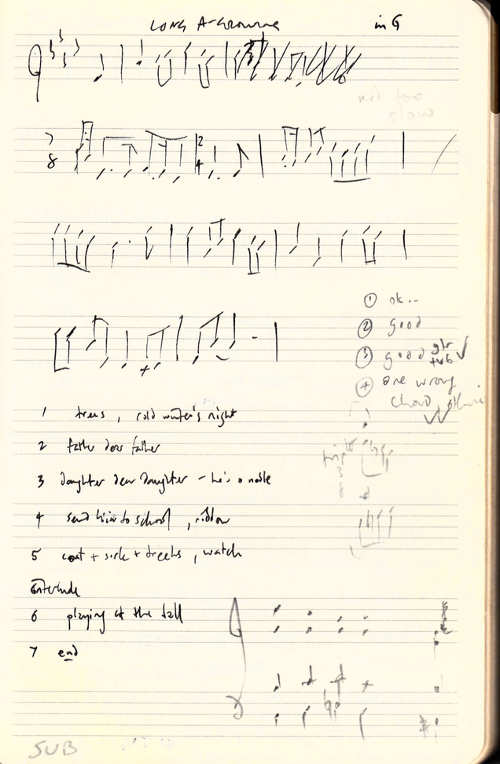 LONG A-GROWING in G
not too
slow
7
8
2
4
1 ok..
2 good
3 good gtr
4 one wrong
chord,
1 trees, cold winter's night
2 father dear father
3 daughter dear daughter - he's a noble
4 send him to school, ribbon
5 coat + + , watch
interlude
6 playing at the ball
7 end
SUB